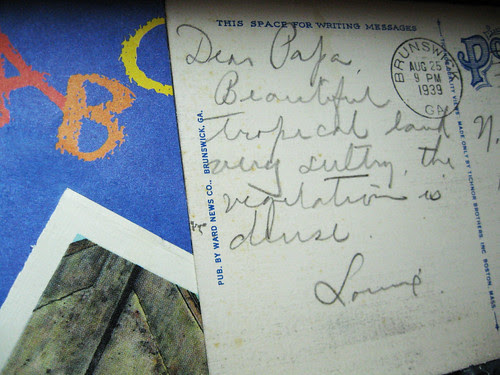 ABC
THIS SPACE FOR WRITING MESSAGES
Dear Papa,
Beautiful
tropical land
very sultry, the
vegetation is
dense.
BRUNSWICK
AUG 25
9 PM
1939
GA.
PUB. BY WARD NEWS CO., BRUNSWICK, GA.
MADE ONLY BY TICHNOR BROTHERS, INC. BOSTON, MASS.